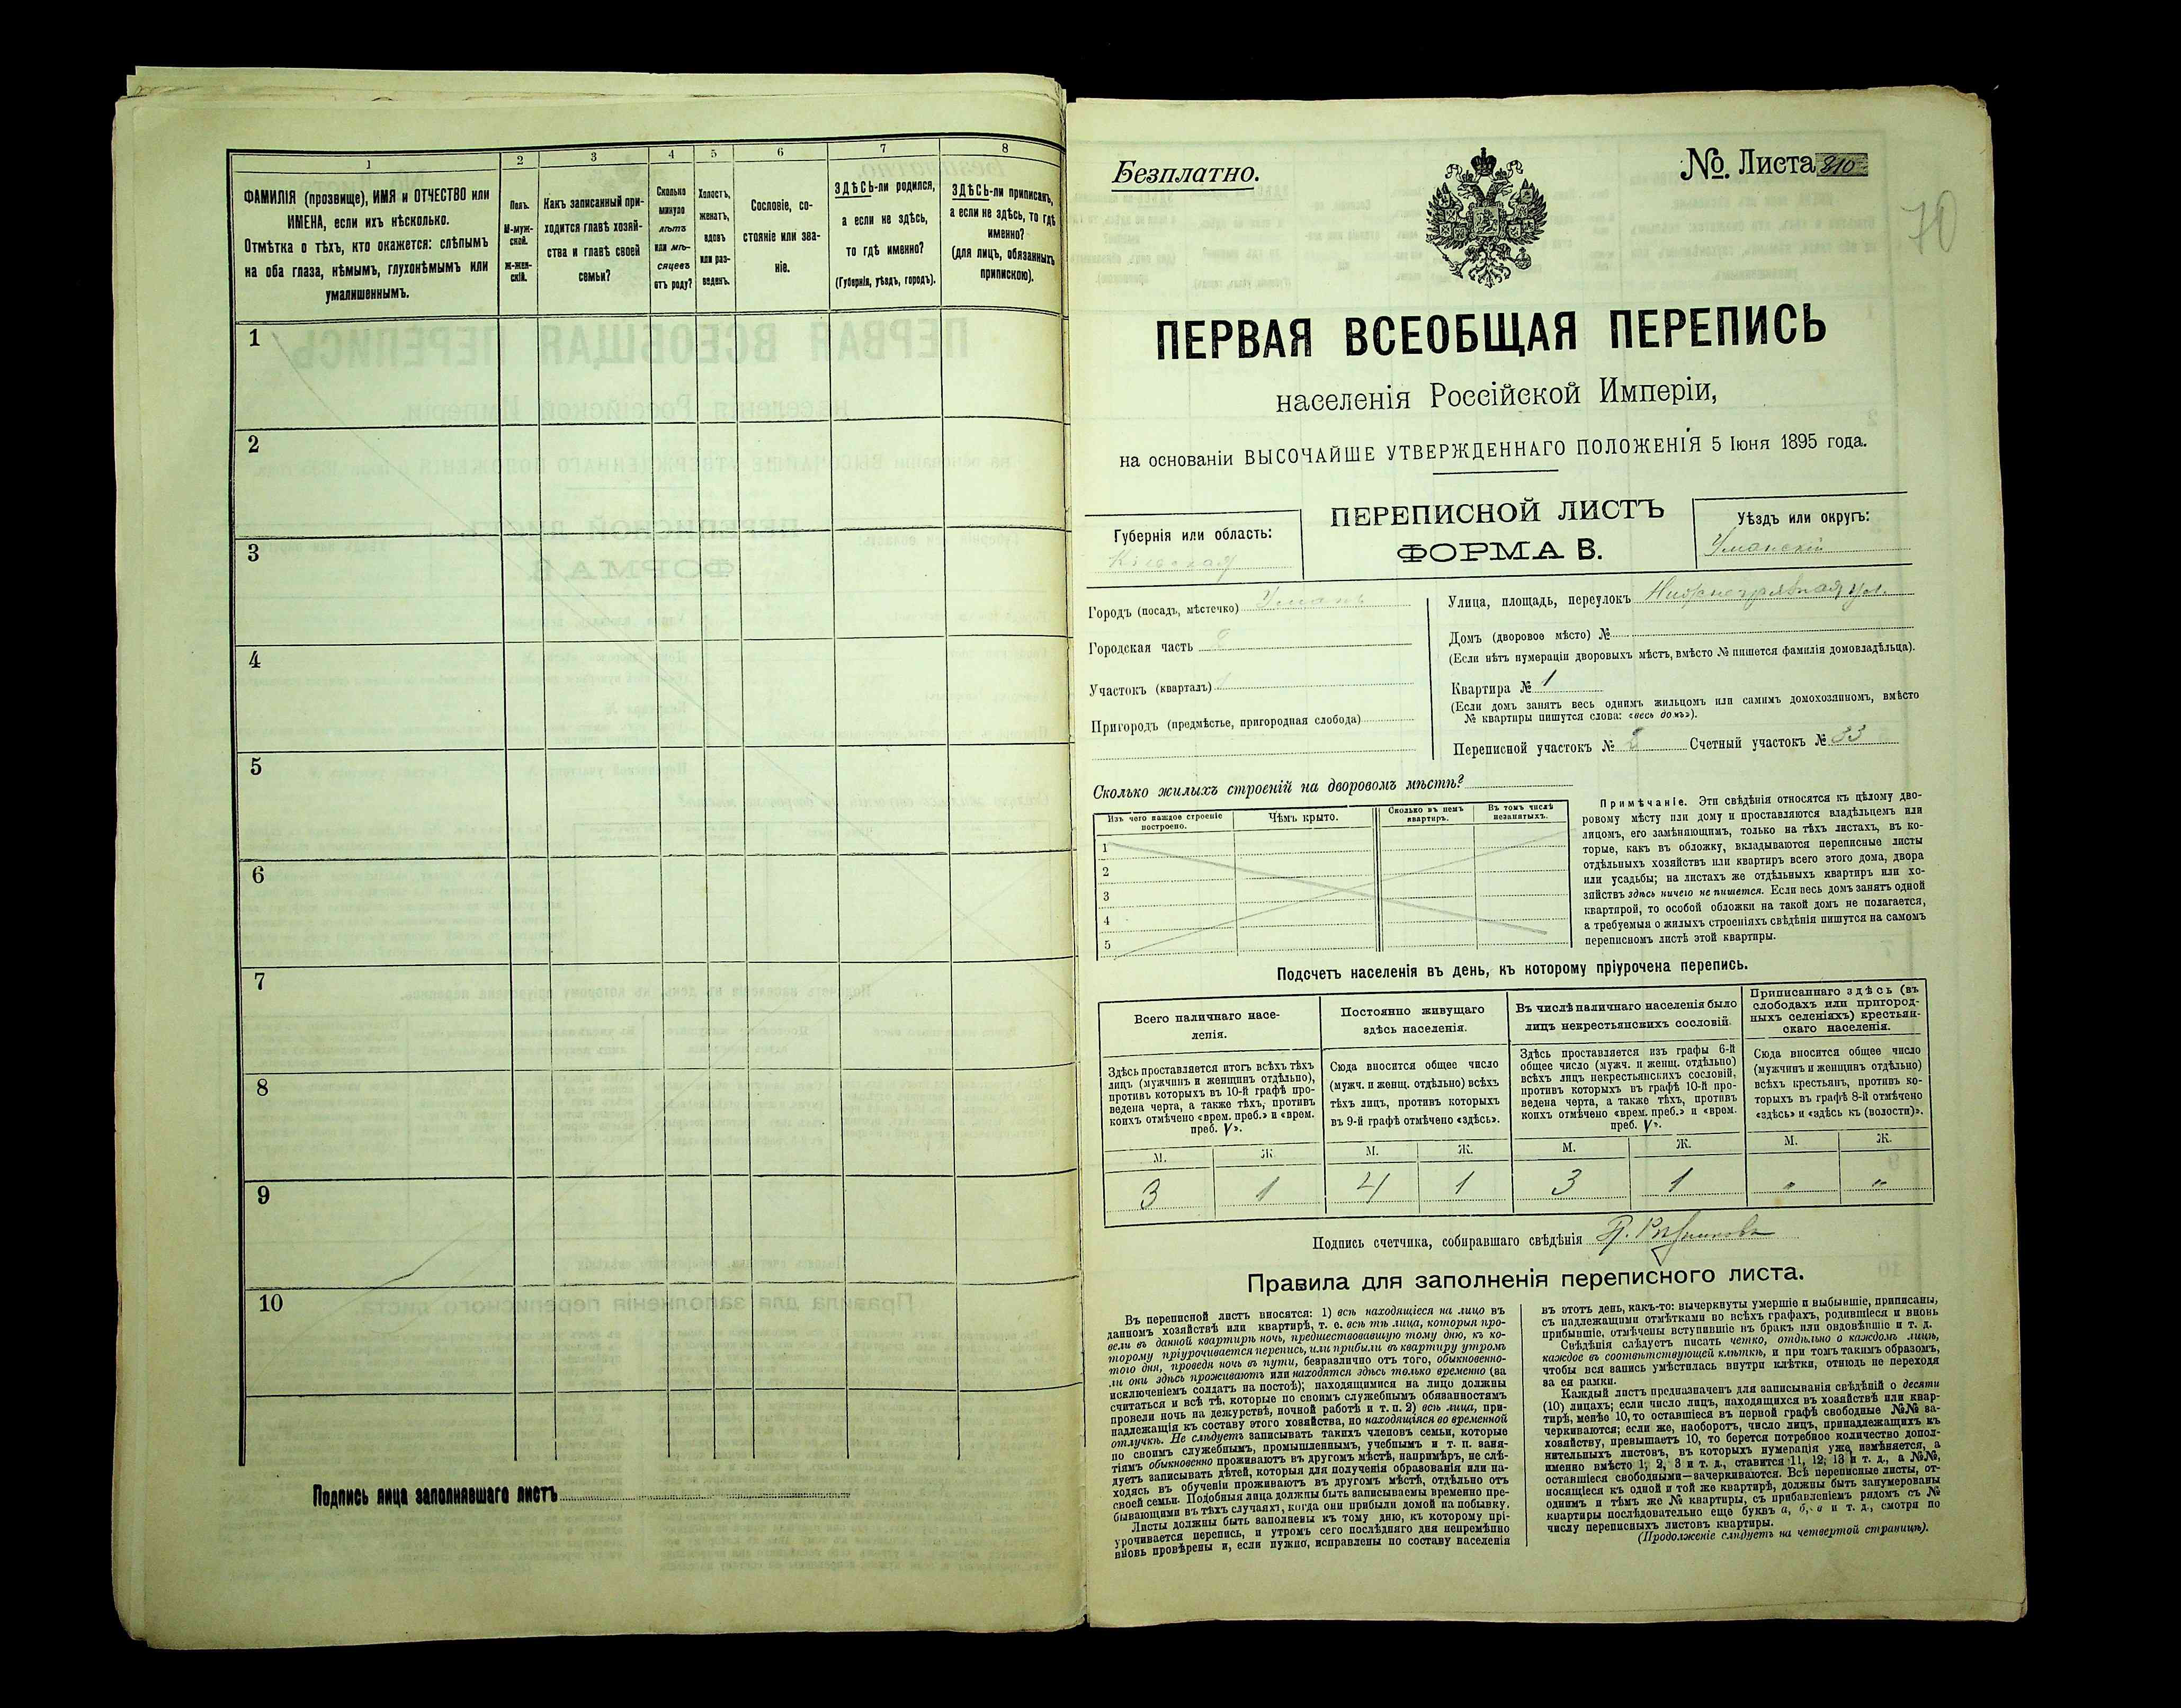 1 2 3 4 5 6 7 8
ФАМИЛІЯ (прозвище), ИМЯ и ОТЧЕСТВО или
ИМЕНА, если ихъ нѣсколько.
Отмѣтка о тѣхъ, кто окажется: слѣпымъ
на оба глаза, нѣмымъ, глухонѣмымъ или
умалишеннымъ.
Полъ.
М-муж-
ской.
Ж-жен-
скій.
Какъ записанный при-
ходится главѣ хозяй-
ства и главѣ своей
семьи?
Сколько
минуло
лѣтъ
или мѣ-
сяцевъ
отъ роду?
Холостъ,
женатъ,
вдовъ
или раз-
веденъ.
Сословіе, со-
стояніе или зва-
ніе.
ЗДѢСЬ-ли родился,
а если не здѣсь,
то гдѣ именно?
(Губернія, уѣздъ, городъ).
ЗДѢСЬ-ли приписанъ,
а если не здѣсь, то гдѣ
именно?
(для лицъ, обязанныхъ
припискою).
1
2
3
4
5
6
7
8
9
10
Подпись лица заполнявшаго листъ
Безплатно.
№. Листа 810
70
ПЕРВАЯ ВСЕОБЩАЯ ПЕРЕПИСЬ
населенія Россійской Имперіи,
на основаніи ВЫСОЧАЙШЕ УТВЕРЖДЕННАГО ПОЛОЖЕНІЯ 5 Іюня 1895 года.
ПЕРЕПИСНОЙ ЛИСТЪ
ФОРМА В.
Губернія или область:
Кіевская
Уѣздъ или округъ:
Уманскій
Городъ (посадъ, мѣстечко) Умань
Городская часть 2
Участокъ (кварталъ)
Пригородъ (предмѣстье, пригородная слобода)
Улица, площадь, переулокъ ул.
Домъ (дворовое мѣсто) №
(Если нѣтъ нумераціи дворовыхъ мѣстъ, вмѣсто № пишется фамилія домовладѣльца).
Квартира № 1
(Если домъ занятъ весь однимъ жильцомъ или самимъ домохозяиномъ, вмѣсто
№ квартиры пишутся слова: «весь домъ»).
Переписной участокъ № 2 Счетный участокъ № 33
Сколько жилыхъ строеній на дворовомъ мѣстѣ?
Изъ чего каждое строеніе
построено.
Чѣмъ крыто.
Сколько въ немъ
квартиръ.
Въ томъ числѣ
незанятыхъ.
1
2
3
4
5
Примѣчаніе. Эти свѣдѣнія относятся къ цѣлому дво-
ровому мѣсту или дому и проставляются владѣльцемъ или
лицомъ, его замѣняющимъ, только на тѣхъ листахъ, въ ко-
торые, какъ въ обложку, вкладываются переписные листы
отдѣльныхъ хозяйствъ или квартиръ всего этого дома, двора
или усадьбы; на листахъ же отдѣльныхъ квартиръ или хо-
зяйствъ здѣсь ничего не пишется. Если весь домъ занятъ одной
квартирой, то особой обложки на такой домъ не полагается,
а требуемыя о жилыхъ строеніяхъ свѣдѣнія пишутся на самомъ
переписномъ листѣ этой квартиры.
Подсчетъ населенія въ день, къ которому пріурочена перепись.
Всего наличнаго насе-
ленія.
Постоянно живущаго
здѣсь населенія.
Въ числѣ наличнаго населенія было
лицъ некрестьянскихъ сословій.
Приписаннаго здѣсь (въ
слободахъ или пригород-
ныхъ селеніяхъ) крестьян-
скаго населенія.
Здѣсь проставляется итогъ всѣхъ тѣхъ
лицъ (мужчинъ и женщинъ отдѣльно),
противъ которыхъ въ 10-й графѣ про-
ведена черта, а также тѣхъ, противъ
коихъ отмѣчено «врем. преб.» и «врем.
преб. V».
Сюда вносится общее число
(мужч. и женщ. отдѣльно) всѣхъ
тѣхъ лицъ, противъ которыхъ
въ 9-й графѣ отмѣчено «здѣсь».
Здѣсь проставляется изъ графы 6-й
общее число (мужч. и женщ. отдѣльно)
всѣхъ лицъ некрестьянскихъ сословій,
противъ которыхъ въ графѣ 10-й про-
ведена черта, а также тѣхъ, противъ
коихъ отмѣчено «врем. преб.» и «врем.
преб. V».
Сюда вносится общее число
(мужчинъ и женщинъ отдѣльно)
всѣхъ крестьянъ, противъ ко-
торыхъ въ графѣ 8-й отмѣчено
«здѣсь» и «здѣсь къ (волости)».
М. Ж. М. Ж. М. Ж. М. Ж.
3 1 4 1 3 1 " "
Подпись счетчика, собиравшаго свѣдѣнія
Правила для заполненія переписного листа.
Въ переписной листъ вносятся: 1) всѣ находящіеся на лицо въ
данномъ хозяйствѣ или квартирѣ, т. е. всѣ тѣ лица, которыя про-
вели въ данной квартирѣ ночь, предшествовавшую тому дню, къ ко-
торому пріурочивается перепись, или прибыли въ квартиру утромъ
того дня, проведя ночь въ пути, безразлично отъ того, обыкновенно-
ли они здѣсь проживаютъ или находятся здѣсь только временно (за
исключеніемъ солдатъ на постоѣ); находящимися на лицо должны
считаться и всѣ тѣ, которые по своимъ служебнымъ обязанностямъ
провели ночь на дежурствѣ, ночной работѣ и т. п. 2) всѣ лица, при-
надлежащія къ составу этого хозяйства, но находящіяся во временной
отлучкѣ. Не слѣдуетъ записывать такихъ членовъ семьи, которые
по своимъ служебнымъ, промышленнымъ, учебнымъ и т. п. заня-
тіямъ обыкновенно проживаютъ въ другомъ мѣстѣ, напримѣръ, не слѣ-
дуетъ записывать дѣтей, которыя для полученія образованія или на-
ходясь въ обученіи проживаютъ въ другомъ мѣстѣ, отдѣльно отъ
своей семьи. Подобныя лица должны быть записываемы временно пре-
бывающими въ тѣхъ случаяхъ, когда они прибыли домой на побывку.
Листы должны быть заполнены къ тому дню, къ которому прі-
урочивается перепись, и утромъ сего послѣдняго дня непремѣнно
вновь провѣрены и, если нужно, исправлены по составу населенія
въ этотъ день, какъ-то: вычеркнуты умершіе и выбывшіе, приписаны,
съ надлежащими отмѣтками во всѣхъ графахъ, родившіеся и вновь
прибывшіе, отмѣчены вступившіе въ бракъ или овдовѣвшіе и т. д.
Свѣдѣнія слѣдуетъ писать четко, отдѣльно о каждомъ лицѣ,
каждое въ соотвѣтствующей клѣткѣ, и при томъ такимъ образомъ,
чтобы вся запись умѣстилась внутри клѣтки, отнюдь не переходя
за ея рамки.
Каждый листъ предназначенъ для записыванія свѣдѣній о десяти
(10) лицахъ; если число лицъ, находящихся въ хозяйствѣ или квар-
тирѣ, менѣе 10, то оставшіеся въ первой графѣ свободные №№ за-
черкиваются; если же, наоборотъ, число лицъ, принадлежащихъ къ
хозяйству, превышаетъ 10, то берется потребное количество допол-
нительныхъ листовъ, въ которыхъ нумерація уже измѣняется, а
именно вмѣсто 1, 2, 3 и т. д., ставится 11, 12, 13 и т. д., а №№,
оставшіеся свободными—зачеркиваются. Всѣ переписные листы, от-
носящіеся къ одной и той же квартирѣ, должны быть занумерованы
однимъ и тѣмъ же № квартиры, съ прибавленіемъ рядомъ съ №
квартиры послѣдовательно еще буквъ а, б, в и т. д., смотря по
числу переписныхъ листовъ квартиры.
(Продолженіе слѣдуетъ на четвертой страницѣ).